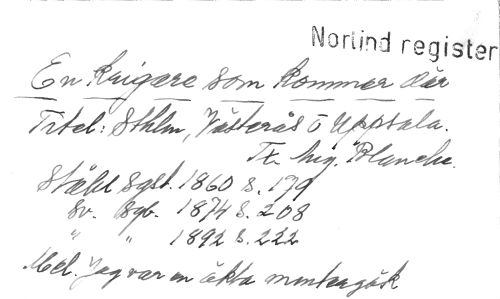 Norlind register
En krigare som kommer där
Titel: Sthlm, Västerås o Uppsala.
Tx. Aug. Blanche.
Ståhl Sgst. 1860 s. 179
Sv. Sgb. 1874 s. 208
" " 1892 s. 222
Mel. Jag var en äkta